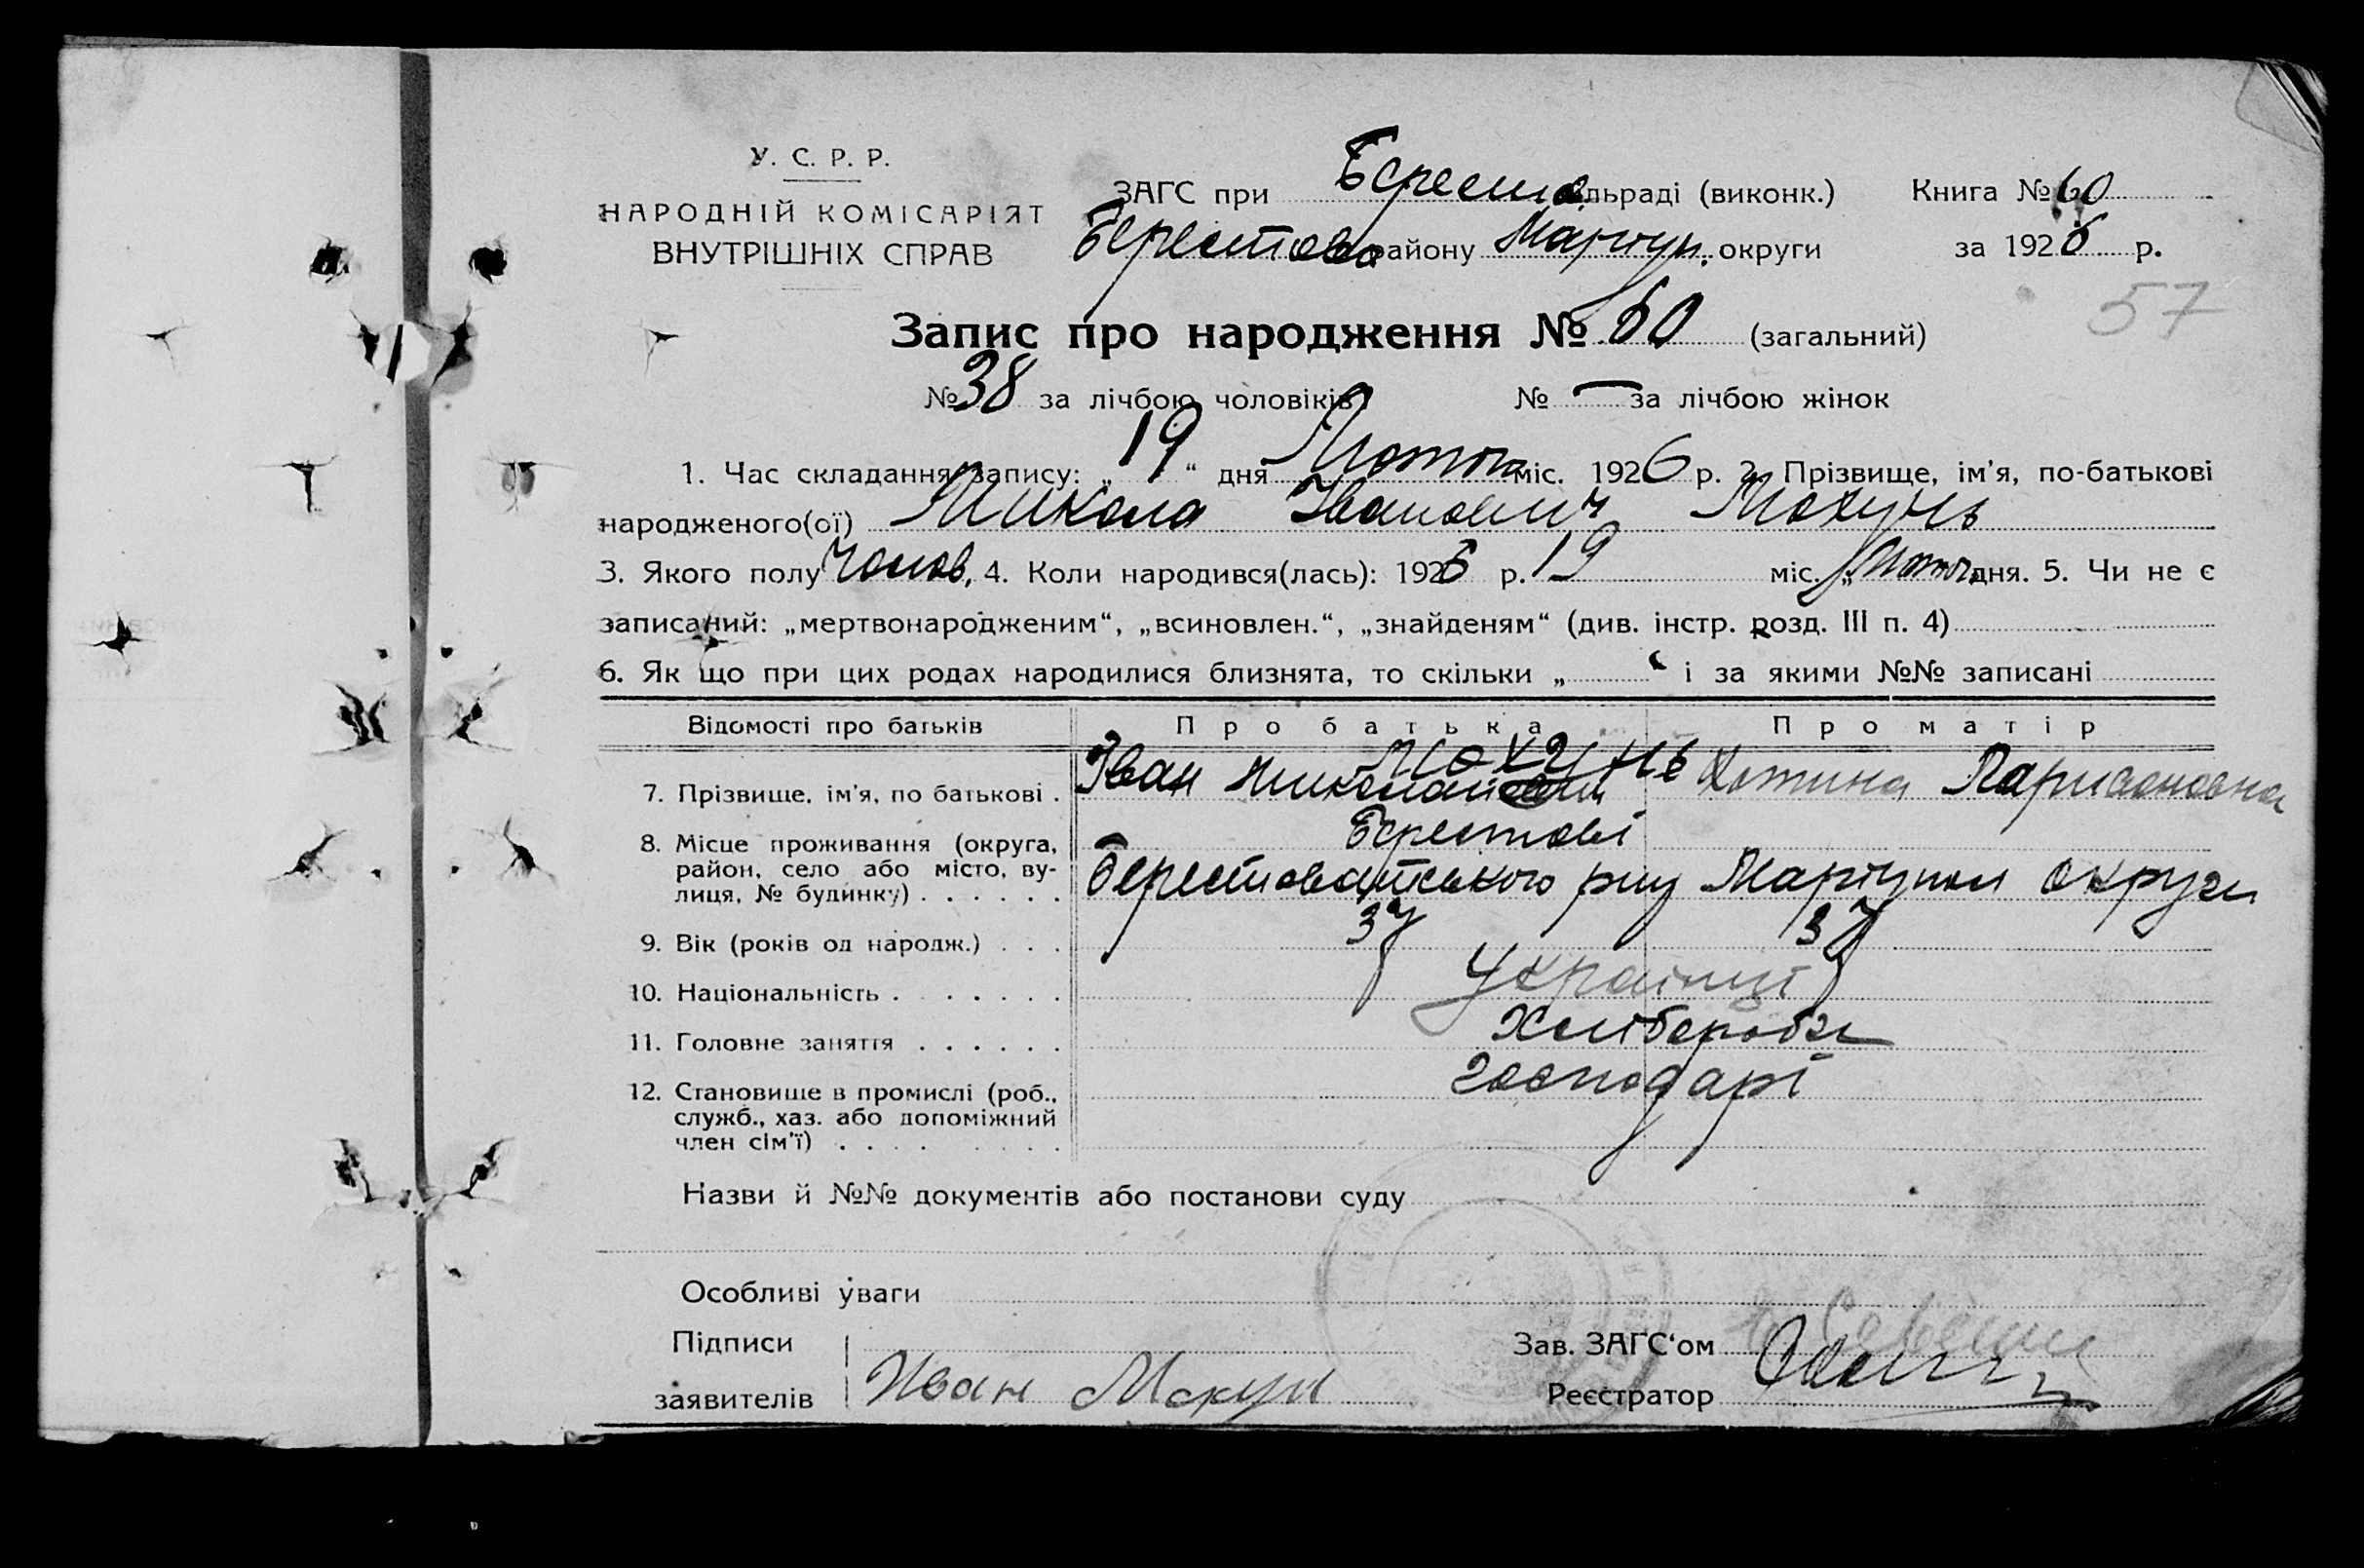 У. С. Р. Р.
НАРОДНІЙ КОМІСАРІЯТ
ВНУТРІШНІХ СПРАВ
ЗАГС при Берестов. сільраді (виконк.) Книга № 60
Берестово району Маріуп. округи за 1926 р.
57
Запис про народження № 60 (загальний)
№ 38 за лічбою чоловіків № — за лічбою жінок
1. Час складання запису: „19“ дня Лютого міс. 1926 р. 2. Прізвище, ім'я, по-батькові
народженого(ої) Микола Іванович Мокунь
3. Якого полу Чолов. 4. Коли народився(лась): 1926 р. 19 міс. „ Лютого дня. 5. Чи не є
записаний: „мертвонародженим“, „всиновлен.“, „знайденям“ (див. інстр. розд. III п. 4)
6. Як що при цих родах народилися близнята, то скільки „ “ і за якими №№ записані
Відомості про батьків Про батька Про матір
Мокунь
7. Прізвище, ім'я, по батькові . Іван Николаи Ларивоновна
8. Місце проживання (округа, Берестові
район, село або місто, ву- Берестоватського рну Маріупол округи
лиця, № будинку) . . . . . .
9. Вік (років од народж.) . . . 37 37
10. Національність . . . . . . . Українці
11. Головне заняття . . . . . . Хліборобы
12. Становище в промислі (роб., господарі
служб., хаз. або допоміжний
член сім'ї) . . . . . . . .
Назви й №№ документів або постанови суду
Особливі уваги
Підписи Зав. ЗАГС‘ом
заявителів Иван Мокун Реєстратор